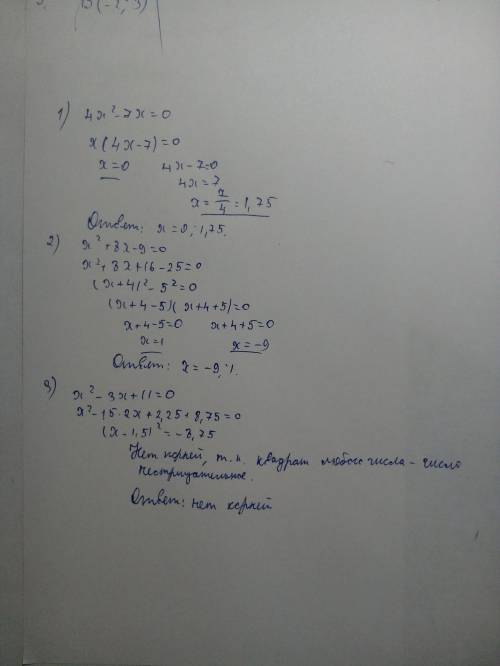 В(-2; 3)
1) 4x² - 7x = 0
x(4x-7) = 0
x = 0 4x - 7 = 0
4x = 7
x = 7/4 = 1,75
Ответ: x = 0; 1,75.
2) x² + 8x - 9 = 0
x² + 8x + 16 - 25 = 0
(x+4)² - 5² = 0
(x+4-5)(x+4+5) = 0
x+4-5=0 x+4+5=0
x=1 x=-9
Ответ: x = -9; 1.
3) x² - 3x + 11 = 0
x² - 1,5·2x + 2,25 + 8,75 = 0
(x-1,5)² = -8,75
Нет корней, т.к. квадрат любого числа - число
неотрицательное.
Ответ: нет корней